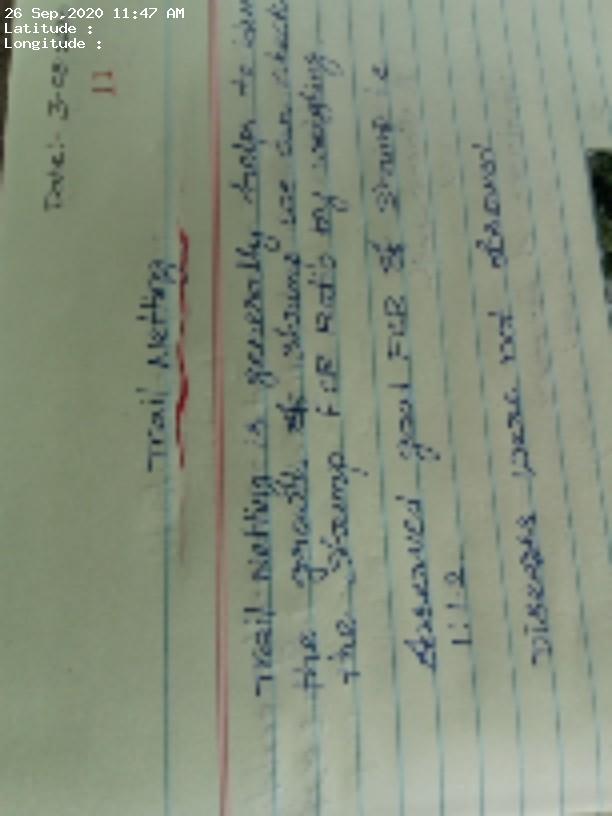 26 Sep,2020 11:47 AM
Latitude :
Longitude :
Date:- 3-
11
Trail Netting
Trail Netting is generally
the growth of shrump we can check
the shrump FCR Ratio by weighing
Assumed goal FCR of shrump is
1:1.2
Diseases were not